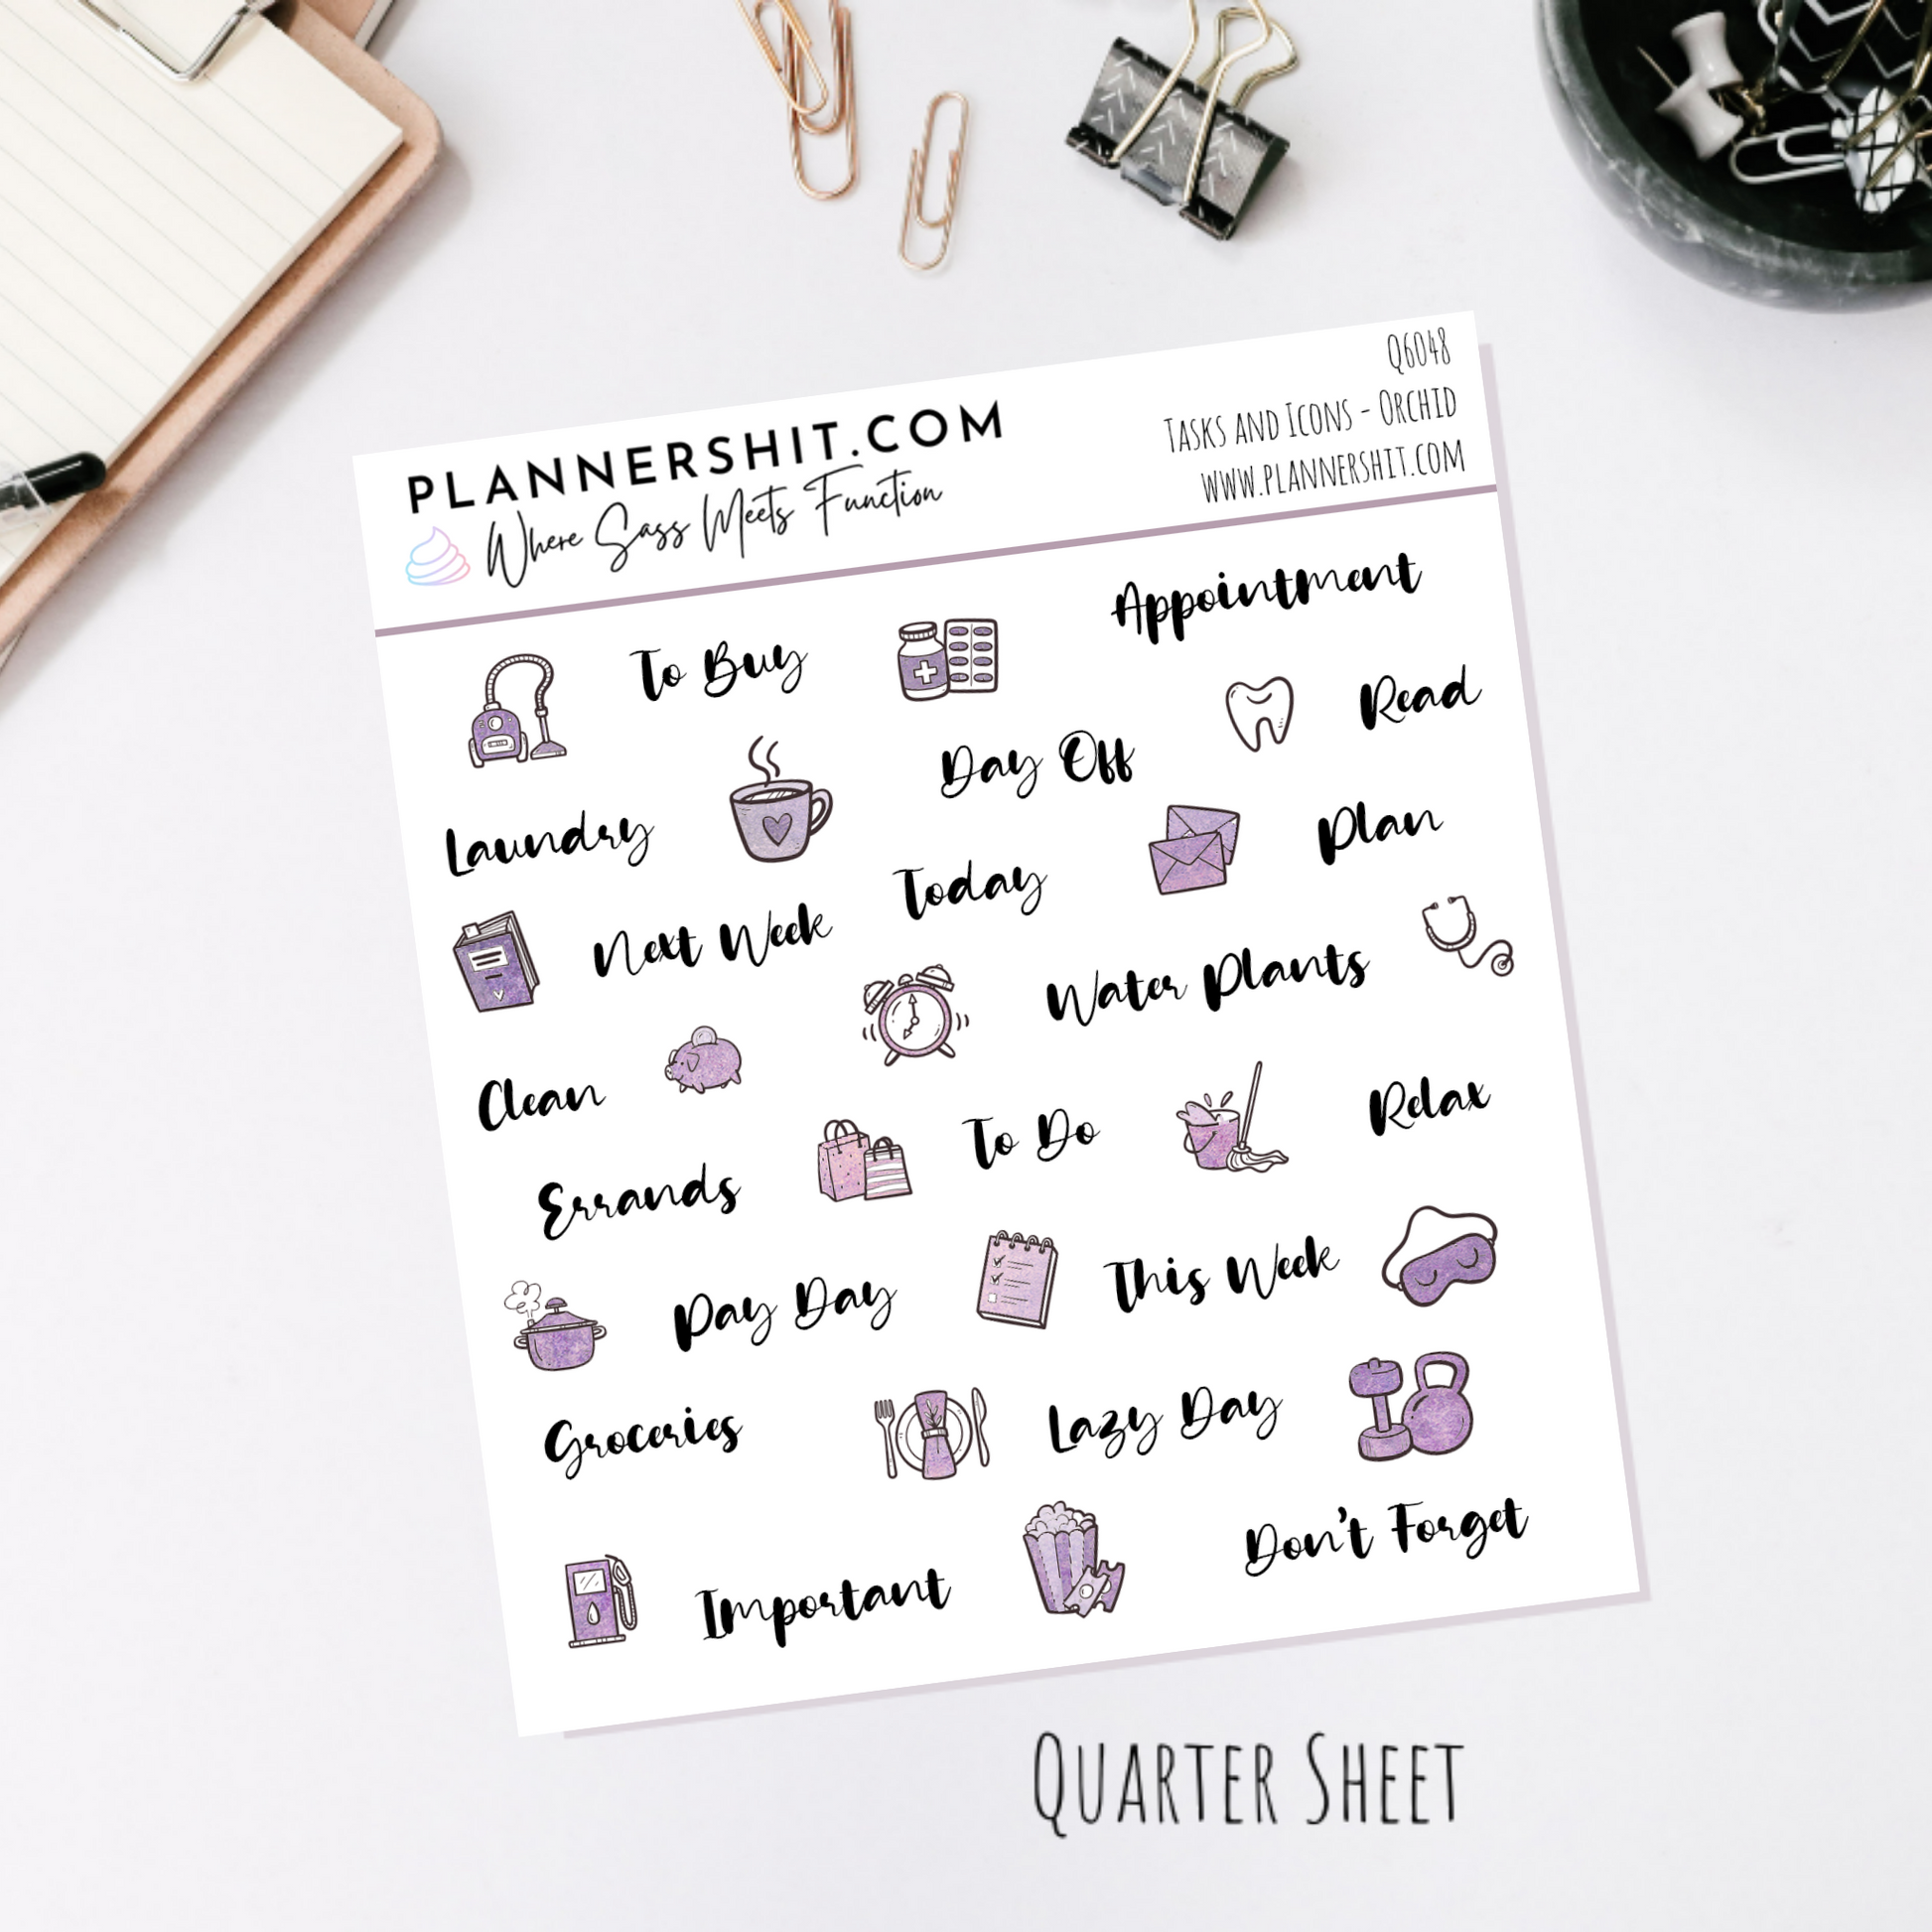 PLANNERSHIT.COM
Where Sass Meets Function
Q6048
Tasks and Icons - Orchid
www.plannershit.com
To Buy
Appointment
Read
Day Off
Laundry
Plan
Today
Next Week
Water Plants
Clean
To Do
Relax
Errands
This Week
Pay Day
Groceries
Lazy Day
Don't Forget
Important
Quarter Sheet